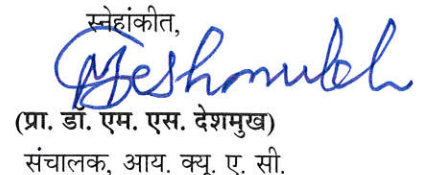 स्नेहांकीत,
Deshmukh
(प्रा. डॉ. एम. एस. देशमुख)
संचालक, आय. क्यू. ए. सी.